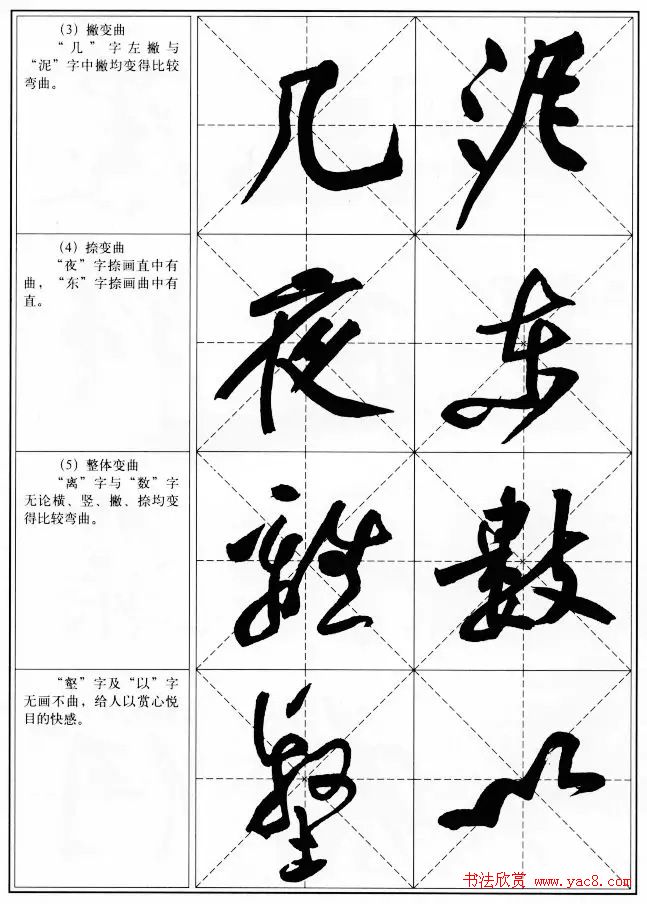 (3) 撇变曲
“几”字左撇与
“泥”字中撇均变得比较
弯曲。
几 泥
(4) 捺变曲
“夜”字捺画直中有
曲，“东”字捺画曲中有
直。
夜 东
(5) 整体变曲
“离”字与“数”字
无论横、竖、撇、捺均变
得比较弯曲。
離 數
“壑”字及“以”字
无画不曲，给人以赏心悦
目的快感。
壑 以
书法欣赏 www.yac8.com